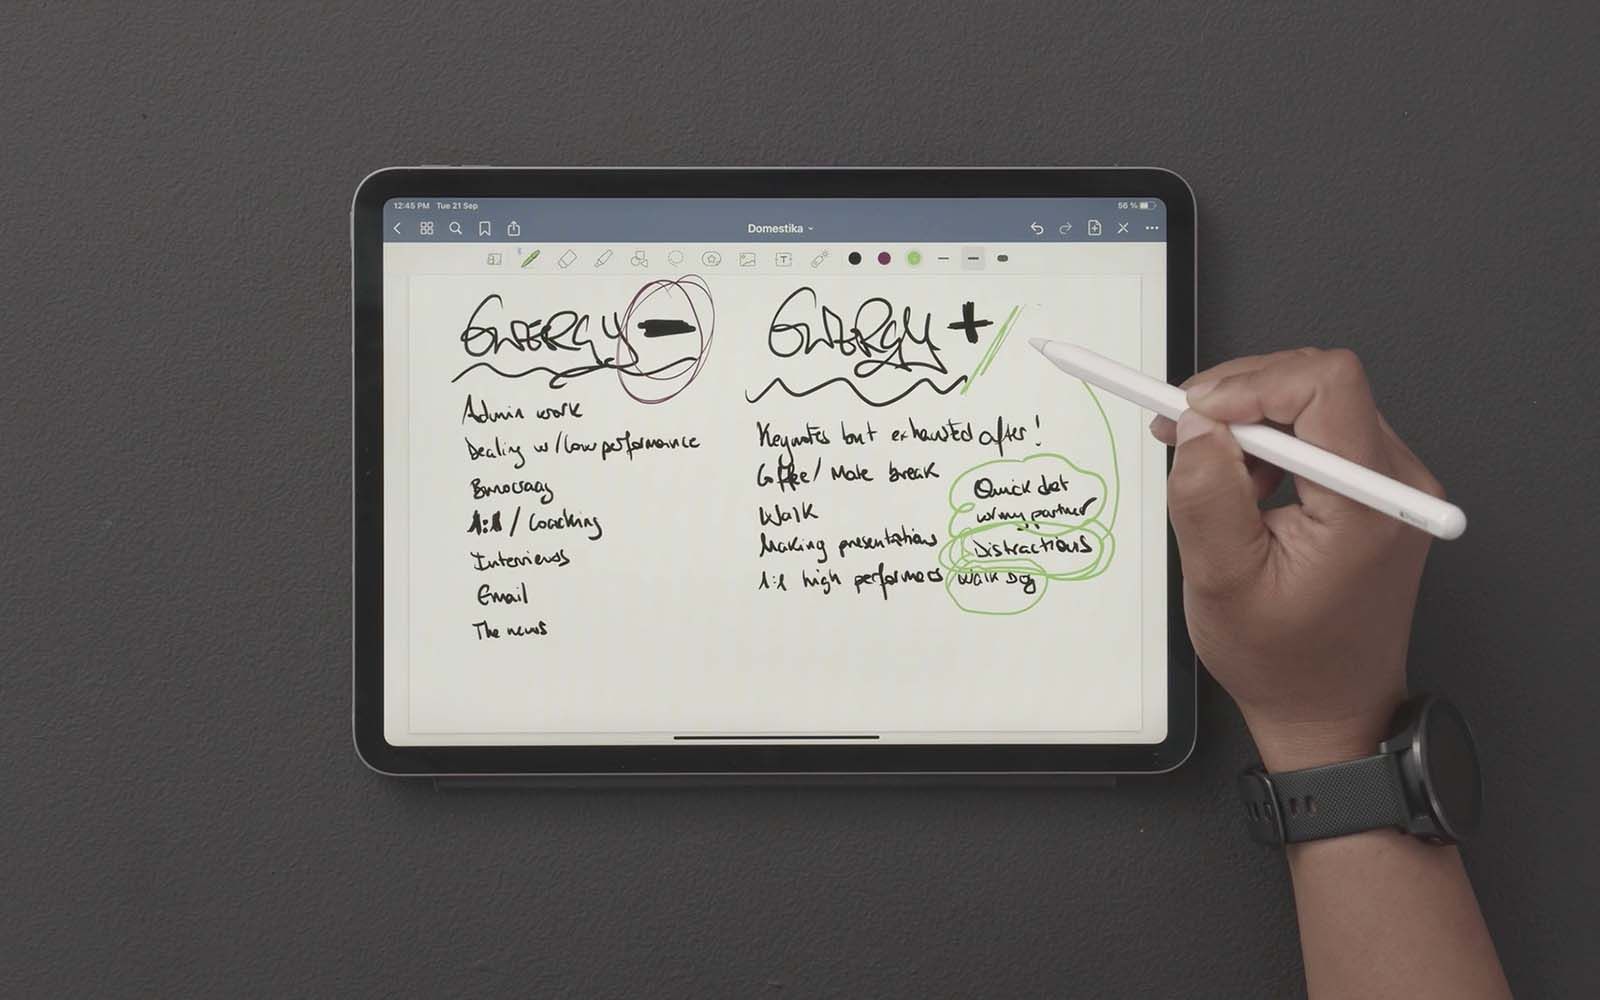 12:45 PM Tue 21 Sep
56 %
Domestika
ENERGY -
Admin work
Dealing w/ low performance
Burocracy
1:1 / Coaching
Interviews
Email
The news
ENERGY +
Keynotes but exhausted after!
Coffee / Mate break
Walk
Making presentations
1:1 high performers
Quick chat
w/ my partner
Distractions
Walk Dog